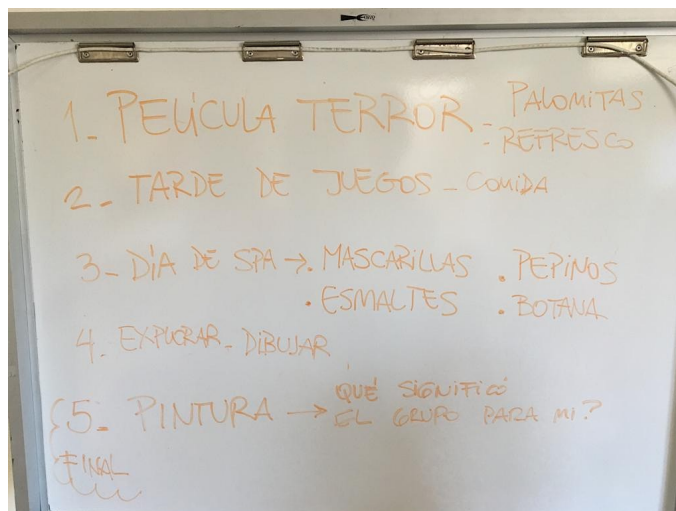 1_ PELÍCULA TERROR - PALOMITAS
- REFRESCO
2_ TARDE DE JUEGOS - COMIDA
3_ DÍA DE SPA → . MASCARILLAS . PEPINOS
. ESMALTES . BOTANA
4. EXPLORAR - DIBUJAR
5_ PINTURA → QUÉ SIGNIFICÓ
EL GRUPO PARA MI?
FINAL